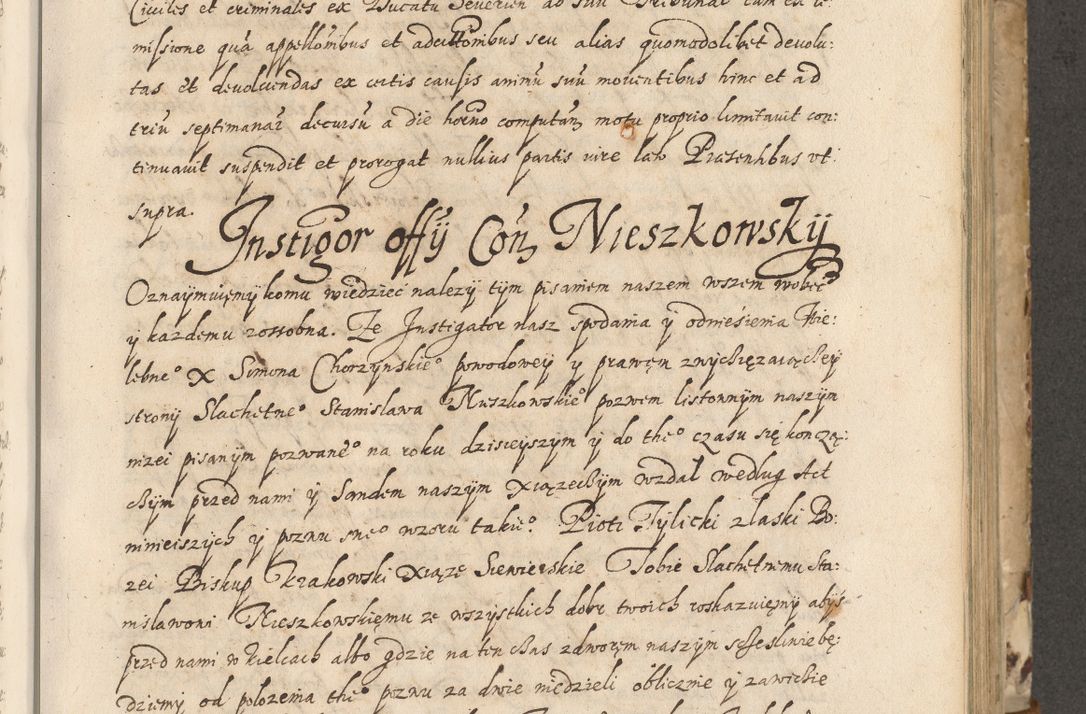 Civiles et criminales ex Ducatu Severien ad suū Tribunal tam ex re:
missione quā appellōnibus et adcitōnibus seu alias quomodolibet devolu:
tas et devoluendas ex certis causis animū suū moventibus hinc et ad
triū septimanaȝ decursū a die horno computanȝ motu proprio limitavit con:
tinuavit suspendit et prorogat nullius partis iure laso Præsentibus vt
supra.
Instigōr offÿ Coñȝ Nieszkowskÿ
Oznaÿmuięmÿ komu wiedzieć nalezÿ tÿm pisaniem naszem wszem wobec
ÿ kazdemu zossobna. Ze Instigator nasz zpodania ÿ odnieśienia Wie:
lebne° X Simona Chorzÿnskie° powodoweÿ y prawęn zwÿcięzaiącÿeÿ
stronÿ Slachetne° Stanislawa Nieszkowskie° pozwem listownÿm naszÿm
nizei pisanÿm pozwane° na roku dzisieÿszÿm ÿ do the° czasu się kończą:
cÿm przed nami ÿ Sandem naszÿm Xiązecÿm wzdał według Act
ninieiszÿch ÿ poznu sne° wzoru takie°. Piotr Tÿlicki złaski Bo:
zei Biskup Krakowski Xiąze Siewierskie Tobie Slachetnemu Sta:
nislawowi Nieszkowskięmu ze wszÿstkich dobr twoich roskazuięmÿ abÿs
przed nami w Kielcach albo gdzie na ten czas zdworęm naszÿm sczesliwie bę:
dziemÿ od położenia the° poznu za dwie niedzieli oblicznie ÿ zawicie